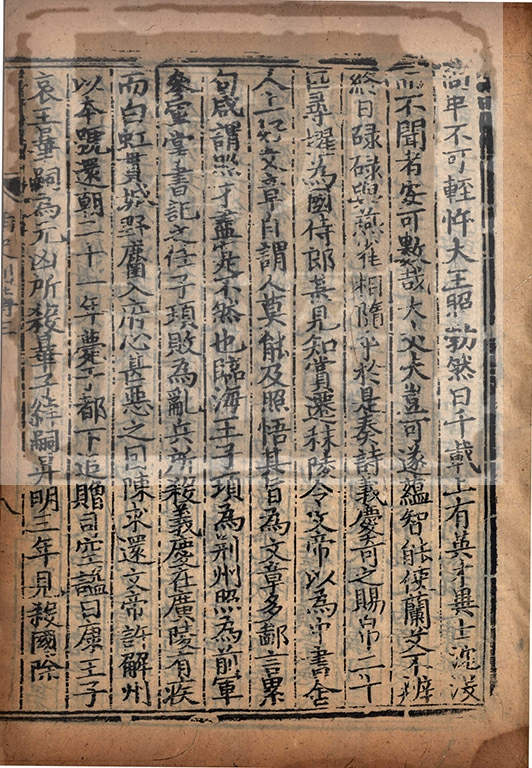 尚卑不可輕忤大王照勃然曰千載上有英才異士沈沒
而不聞者安可數哉大丈夫豈可遂蘊智能使蘭艾不辨
終日碌碌與燕雀相隨乎於是奏詩義慶奇之賜帛二十
匹尋擢為國侍郎甚見知賞遷秣陵令文帝以為中書舍
人上好文章自謂人莫能及照悟其旨為文章多鄙言累
句咸謂照才盡實不然也臨海王子頊為荆州照為前軍
叅軍掌書記之任子頊敗為亂兵所殺義慶在廣陵有疾
而白虹貫城野麕入府心甚惡之因陳求還文帝許解州
以本號還朝二十一年薨于都下追贈司空諡曰康王子
哀王曄嗣為元凶所殺曄子綽嗣昇明三年見殺國除
八